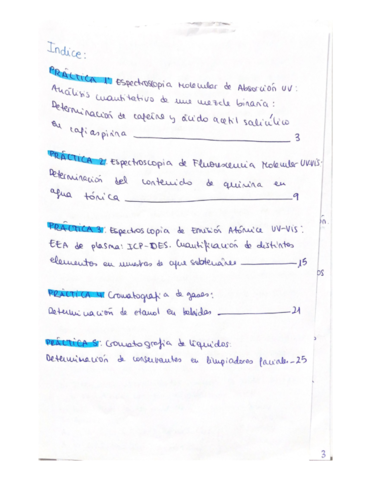 Indice:
PRÁCTICA 1: Espectroscopia Molecular de Absorción UV:
Análisis cuantitativo de una mezcla binaria:
Determinación de cafeína y ácido acetil salicílico
en cafiaspirina 3
PRÁCTICA 2: Espectroscopia de Fluorescencia Molecular UV-Vis:
Determinación del contenido de quinina en
agua tónica 9
PRÁCTICA 3: Espectroscopia de Emisión Atómica UV-Vis:
EEA de plasma: ICP-OES. Cuantificación de distintos
elementos en muestras de agua subterránea 15
PRÁCTICA 4: Cromatografía de gases:
Determinación de etanol en bebidas 21
PRÁCTICA 5: Cromatografía de líquidos:
Determinación de conservantes en limpiadores faciales 25
3